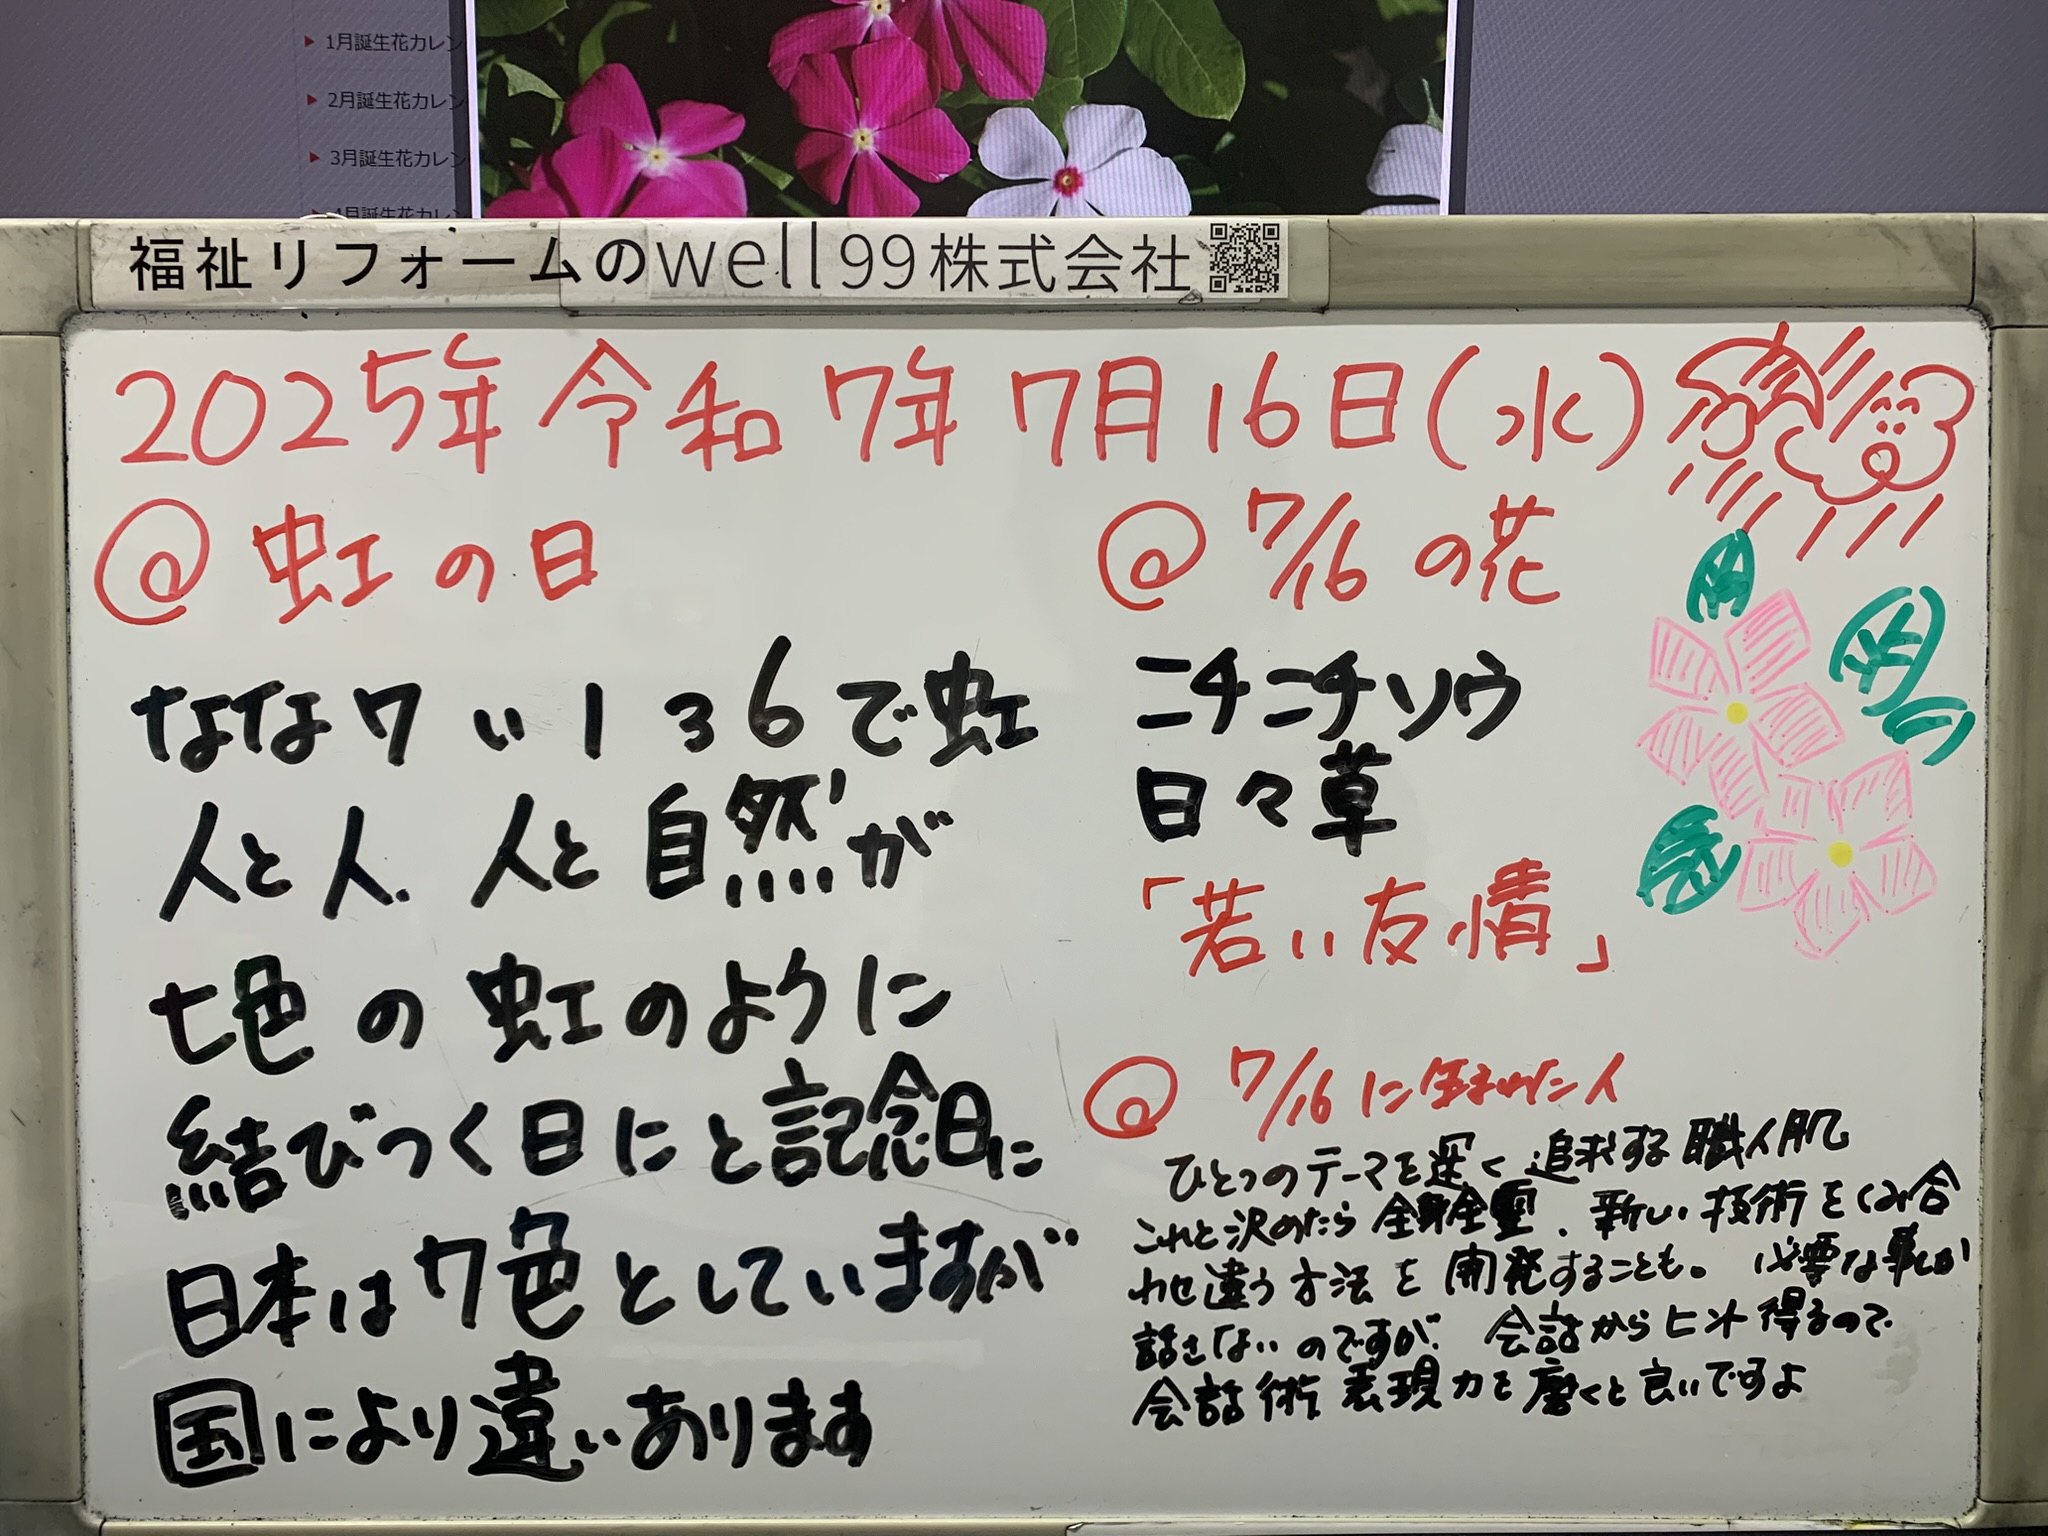 1月誕生花カレン
2月誕生花カレン
3月誕生花カレン
4月誕生花カレン
福祉リフォームのwell99株式会社
2025年令和7年7月16日(水)
@虹の日
なな7い136で虹
人と人、人と自然が
七色の虹のように
結びつく日にと記念日に
日本は7色としていますが
国により違いあります
@7/16の花
ニチニチソウ
日々草
「若い友情」
@7/16に生まれた人
ひとつのテーマを深く追求する職人肌
これと決めたら全身全霊、新しい技術をくみ合
わせ違う方法を開発することも。必要な事しか
話さないのですが、会話からヒント得るので
会話術表現力を磨くと良いですよ